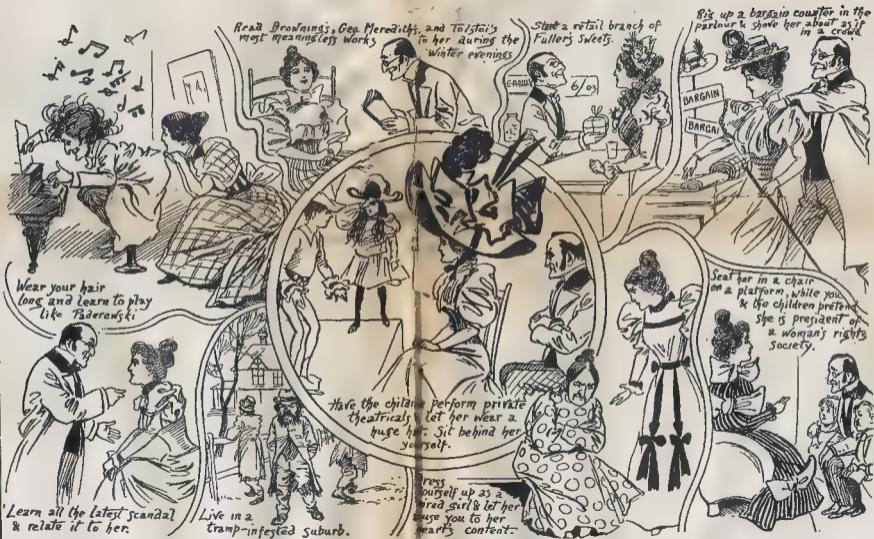 Read Browning's, Geo. Meredith's, and Tolstai's
most meaningless works to her during the
winter evenings
Start a retail branch of
Fuller's Sweets.
Rig up a bargain counter in the
parlour & shove her about as if
in a crowd
CANDY
6/03
BARGAIN
BARGAI
Wear your hair
long and learn to play
like Paderewski
Seat her in a chair
on a platform, while you
& the children pretend
she is president of
a woman's rights
society.
Have the children perform private
theatricals & let her wear a
huge hat. Sit behind her
yourself.
Learn all the latest scandal
& relate it to her.
Live in a
tramp-infested suburb.
Dress
yourself up as a
hired girl & let her
use you to her
heart's content.